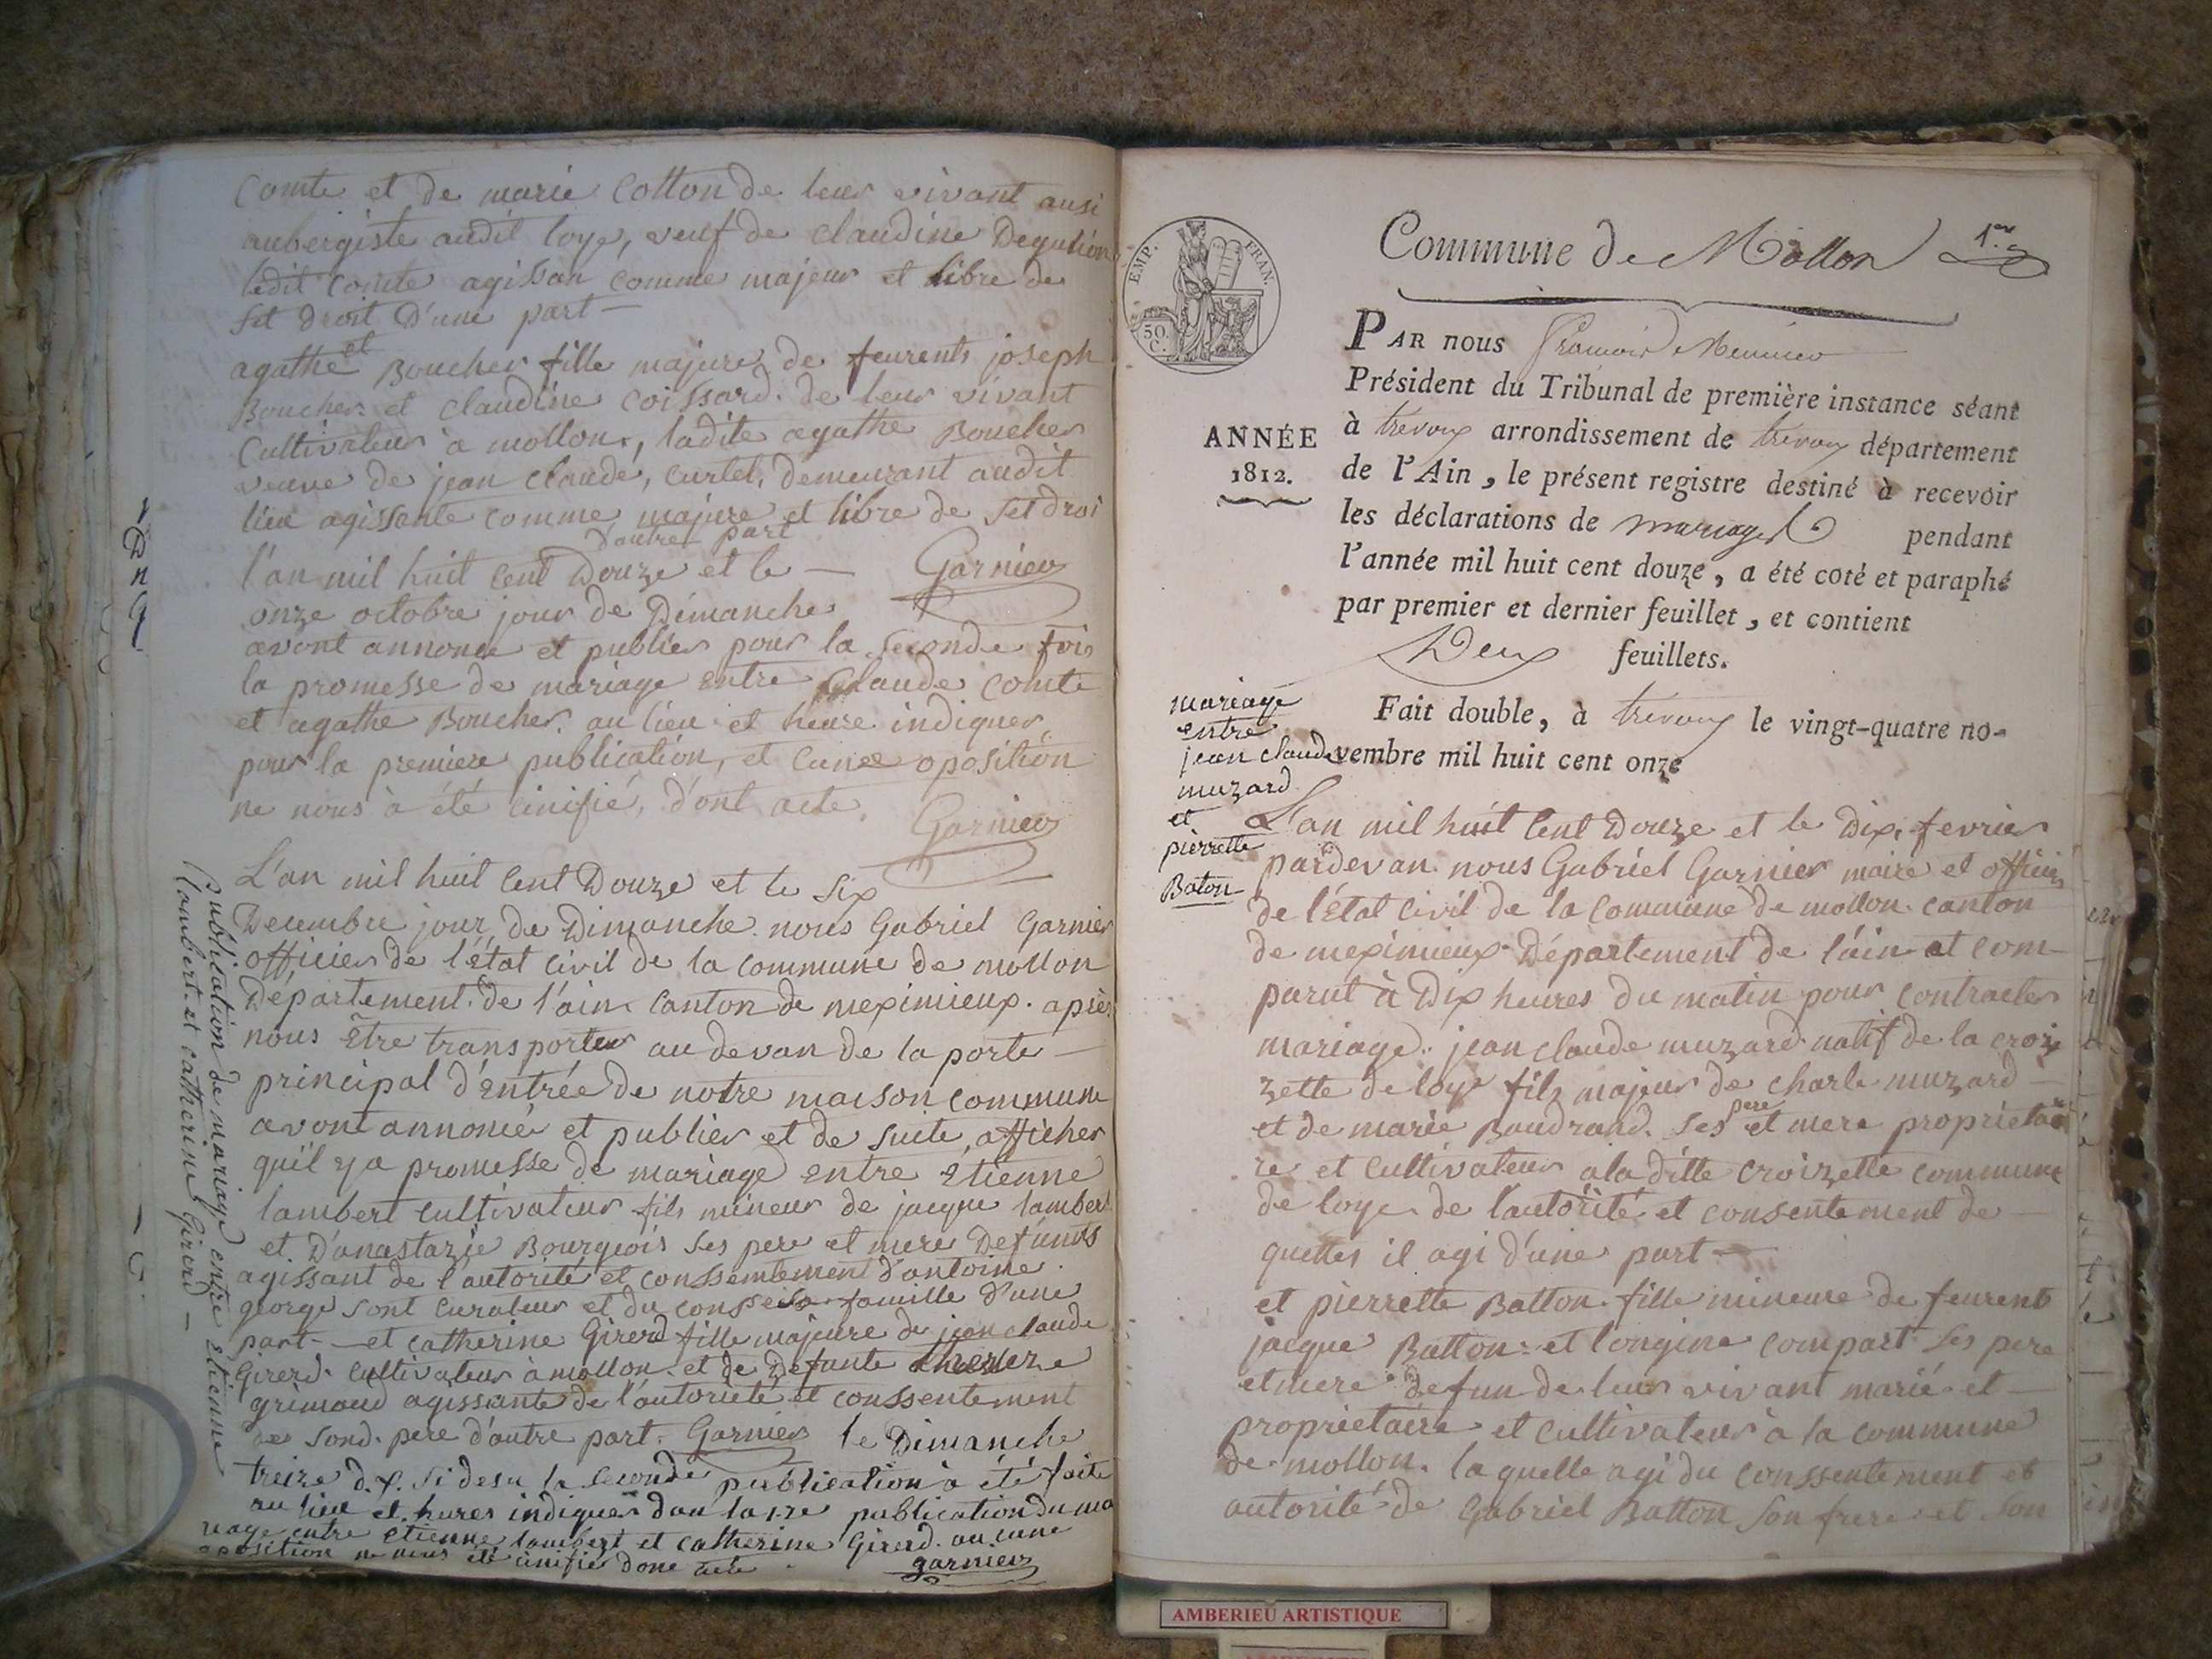 Comte et de marie Cotton de leur vivant ausi
aubergiste audit loye, veuf de claudine
ledit Comte agissan comme majeur et libre de
set droit D'une part —
et
agathe Boucher fille majeure de feurents joseph
Boucher et claudine Coissard de leur vivant
Cultivateur a mollon, ladite agathe Boucher
veuve de jean claude, curtet, demeurant audit
lieu agissante comme majure et libre de set droi
D'autre part
l'an mil huit cent Douze et le — Garnier
onze octobre jour de Dimanche
avont annonce et publier pour la seconde fois
la promesse de mariage entre Claude Comte
et agathe Boucher au lieu et heure indiquer
pour la premiere publication, et Cune oposition
ne nous à été sinifié, d'ont acte. Garnier
L'an mil huit Cent Douze et le six
Decembre jour de Dimanche nous Gabriel Garnier
officier de l'état civil de la commune de mollon
Département de l'ain Canton de meximieux. après
nous être transporter au devan de la porte —
principal d'entrée de notre maison commune
avont annoncér et publier et de suite afficher
quil y a promesse de mariage entre étienne
lambert cultivateur fils mineur de jacque lambert
et D'anastazie Bourgeois ses pere et mere Defunts
agissant de l'autorité et conssentement d'antoine
george sont curateur et du consseil famille d'une
part — et catherine Girerd fille majeure de jean claude
Girerd cultivateur à mollon et de Defunte
grimaud agissante de l'autorieté et conssentement
de sond. pere d'autre part. Garnier le Dimanche
treize d. x. si desu la seconde publication à été faite
au lieu et hures indiquer dan la 1re publication du ma
riage entre etienne lambert et catherine Girerd. aucune
oposition ne nous été sinifier donc acte. garnier
Publication de mariage entre étienne
lambert et catherine Girerd —
Commune de Mollon 1er
EMP. FRAN.
50.
C.
PAR nous François Meunier
Président du Tribunal de première instance séant
à trevoux arrondissement de trevoux département
ANNÉE
1812.
de l'Ain, le présent registre destiné à recevoir
les déclarations de mariages pendant
l'année mil huit cent douze, a été coté et paraphé
par premier et dernier feuillet, et contient
Deux feuillets.
Fait double, à trevoux le vingt-quatre no-
vembre mil huit cent onze
mariage
entre
jean claude
muzard
et
pierrette
Baton
L'an mil huit Cent Douze et le Dix fevrier
pardevan nous Gabriel Garnier maire et officier
de l'état civil de la Commune de mollon canton
de meximieux Département de l'ain et com-
parut à Dix heures du matin pour contracter
mariage: jean claude muzard natif de la croi
zette de loye fils majeur de charle muzard —
et de marie Baudrand. ses pere et mere proprietai
re et Cultivateur a la ditte croizette commune
de loye de l'autorité et consentement de —
quettes il agi d'une part —
et pierrette Batton fille mineure de feurents
jacque Batton et longine compart ses pere
et mere defun de leur vivant marié et —
proprietaire et cultivateur à la commune
de mollon. laquelle agi du conssentement et
autorité de Gabriel Batton son frere et son
AMBERIEU ARTISTIQUE